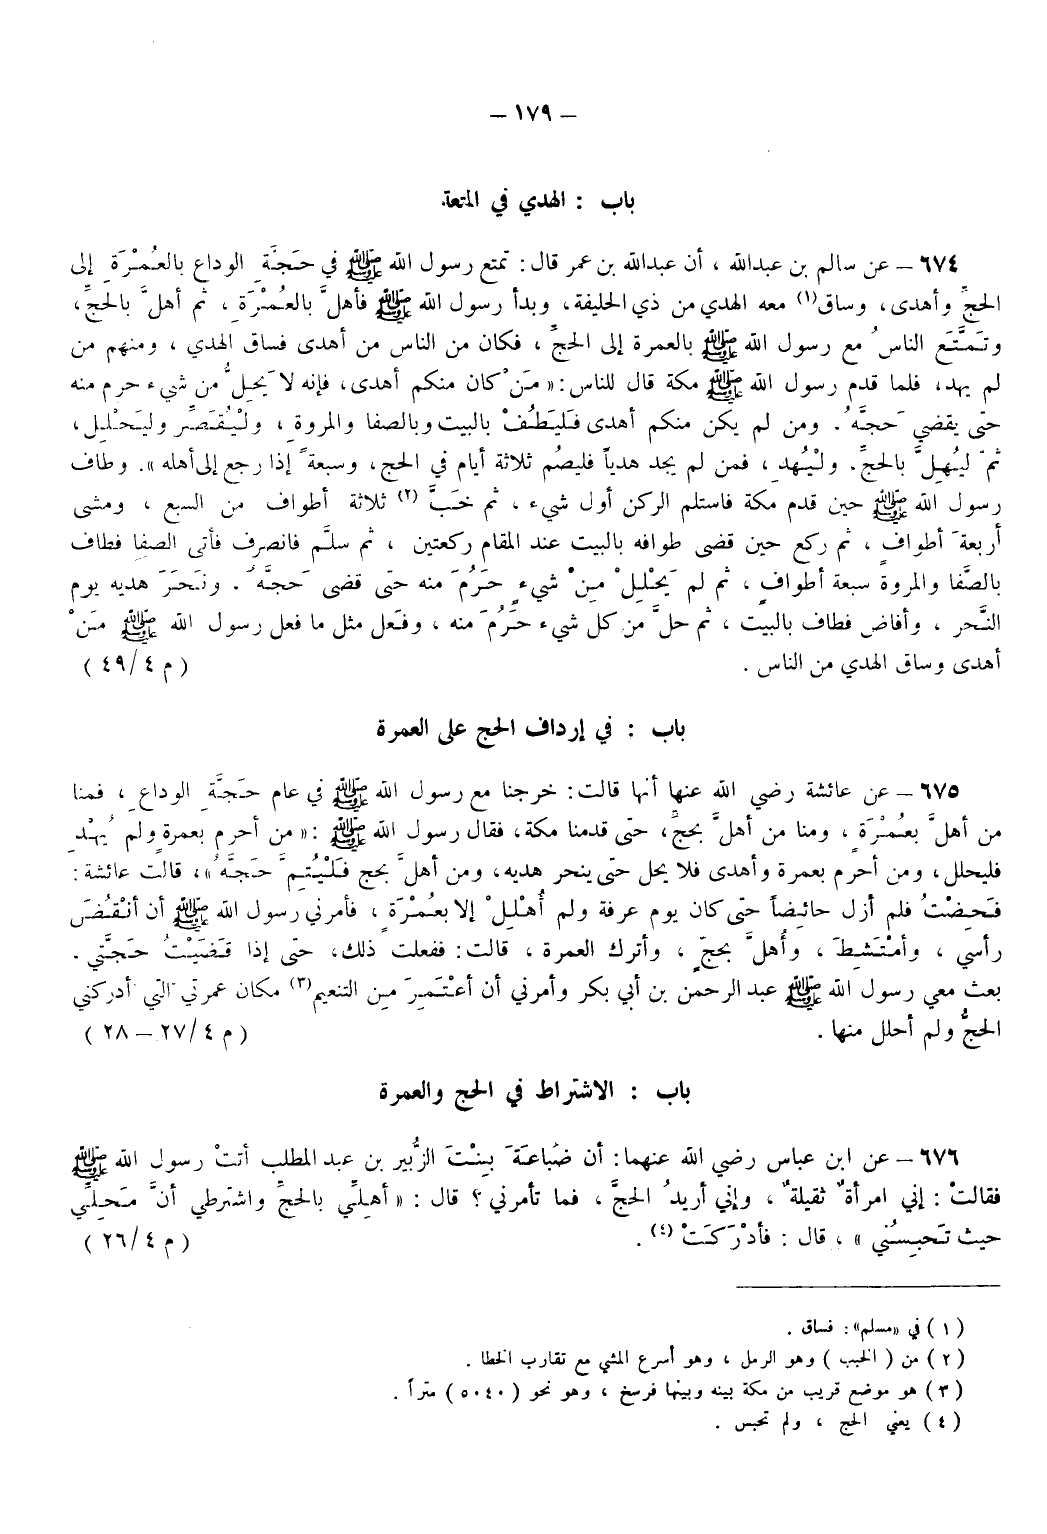 – ١٧٩ –
باب : الهدي في المتعة
٦٧٤ – عن سالم بن عبدالله ، أن عبدالله بن عمر قال : تمتع رسول الله ﷺ في حَجَّةِ الوداع بالعُمْرَةِ إلى
الحجِّ وأهدى، وساق(١) معه الهدي من ذي الحليفة، وبدأ رسول الله ﷺ فأهلَّ بالعُمْرَةِ ، ثم أهلَّ بالحجِّ،
وتَمَتَّعَ الناسُ مع رسول الله ﷺ بالعمرة إلى الحجِّ ، فكان من الناس من أهدى فساق الهدي ، ومنهم من
لم يهد، فلما قدم رسول الله ﷺ مكة قال للناس : « مَنْ كان منكم أهدى، فإنه لا يَحِلُّ من شيء حرم منه
حتى يقضي حَجَّهُ . ومن لم يكن منكم أهدى فَليَطُفْ بالبيت وبالصفا والمروةِ، ولْيُقَصِّر وليَحْلِل،
ثمّ ليُهِلَّ بالحجِّ. ولْيُهدِ ، فمن لم يجد هدياً فليصُم ثلاثة أيام في الحج، وسبعةً إذا رجع إلى أهله ». وطاف
رسول الله ﷺ حين قدم مكة فاستلم الركن أول شيء ، ثم خَبَّ (٢) ثلاثة أطواف من السبع ، ومشى
أربعةَ أطوافٍ ، ثم ركع حين قضى طوافه بالبيت عند المقام ركعتين ، ثم سلَّم فانصرف فأتى الصفا فطاف
بالصَّفا والمروةِ سبعة أطوافٍ ، ثم لم يَحْلِلْ مِنْ شيءٍ حَرُمَ منه حتى قضى حَجَّهُ . ونَحَرَ هديه يوم
النَّحر ، وأفاض فطاف بالبيت ، ثم حلَّ من كل شيء حَرُمَ منه ، وفَعل مثل ما فعل رسول الله ﷺ مَنْ
أهدى وساق الهدي من الناس . ( م ٤/٤٩ )
باب : في إرداف الحج على العمرة
٦٧٥ – عن عائشة رضي الله عنها أنها قالت : خرجنا مع رسول الله ﷺ في عام حَجَّةِ الوداعِ ، فمنا
من أهلَّ بعُمْرَةٍ ، ومنا من أهلَّ بحجٍّ، حتى قدمنا مكة، فقال رسول الله ﷺ : « من أحرم بعمرةٍ ولم يُهْدِ
فليحلل، ومن أحرم بعمرة وأهدى فلا يحل حتى ينحر هديه، ومن أهلَّ بحج فَلْيُتِمَّ حَجَّهُ »، قالت عائشة :
فَحِضْتُ فلم أزل حائِضاً حتى كان يوم عرفة ولم أُهْلِلْ إلا بعُمْرَةٍ ، فأمرني رسول الله ﷺ أن أنْقُضَ
رأسي ، وأمْتَشِطَ ، وأُهلَّ بحجٍّ ، وأترك العمرة ، قالت : ففعلت ذلك، حتى إذا قَضَيْتُ حَجَّتي .
بعث معي رسول الله ﷺ عبد الرحمن بن أبي بكر وأمرني أن أعْتَمِرَ مِن التنعيم(٣) مكان عمرتي التي أدركني
الحجُّ ولم أحلل منها . ( م ٤/٢٧ – ٢٨ )
باب : الاشتراط في الحج والعمرة
٦٧٦ – عن ابن عباس رضي الله عنهما : أن ضُباعَةَ بِنْتَ الزُّبير بن عبد المطلب أتتْ رسول الله ﷺ
فقالتْ : إني امرأةٌ ثقيلةٌ ، وإني أريدُ الحجَّ ، فما تأمرني ؟ قال : « أهلِّي بالحجِّ واشترطي أنَّ مَحِلِّي
حيث تَحبِسُني » ، قال : فأدْرَكَتْ (٤) . ( م ٤/٢٦ )
( ١ ) في «مسلم» : فساق .
( ٢ ) من ( الخبب ) وهو الرمل ، وهو أسرع المشي مع تقارب الخطا .
( ٣ ) هو موضع قريب من مكة بينه وبينها فرسخ ، وهو نحو ( ٥٠٤٠ ) متراً .
( ٤ ) يعني الحج ، ولم تحبس .